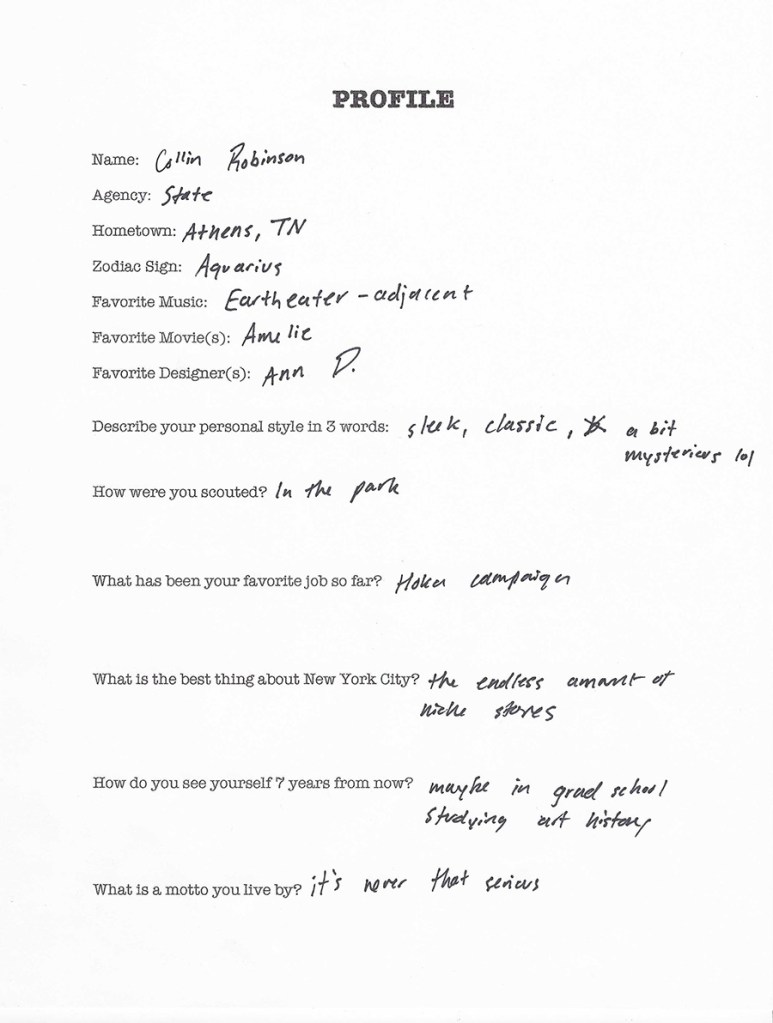 PROFILE
Name: Collin Robinson
Agency: State
Hometown: Athens, TN
Zodiac Sign: Aquarius
Favorite Music: Eartheater-adjacent
Favorite Movie(s): Amelie
Favorite Designer(s): Ann D.
Describe your personal style in 3 words: sleek, classic, a bit
mysterious lol
How were you scouted? In the park
What has been your favorite job so far? Hoka campaign
What is the best thing about New York City? the endless amount of
niche stores
How do you see yourself 7 years from now? maybe in grad school
studying art history
What is a motto you live by? it's never that serious